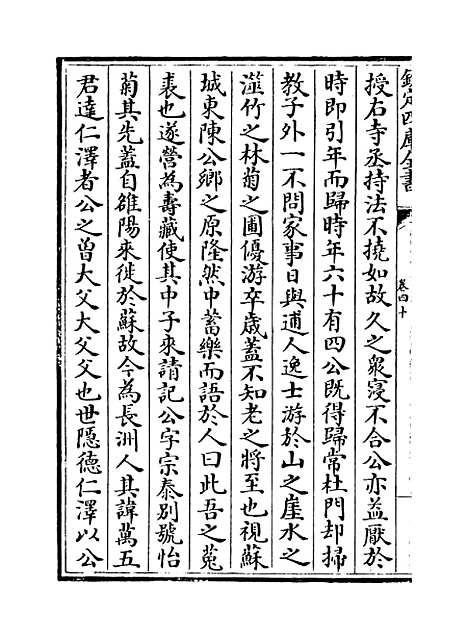 欽定四庫全書
卷四十
授右寺丞持法不撓如故久之衆寖不合公亦益厭於
時即引年而歸時年六十有四公既得歸常杜門却掃
教子外一不問家事日與逋人逸士游於山之崖水之
滋竹之林菊之圃優游卒歲蓋不知老之將至也視蘇
城東陳公鄉之原隆然中蓄樂而語於人曰此吾之菟
裘也遂營為壽藏使其中子來請記公字宗泰別號怡
菊其先蓋自雒陽來徙於蘇故今為長洲人其諱萬五
君達仁澤者公之曾大父大父父也世隱德仁澤以公